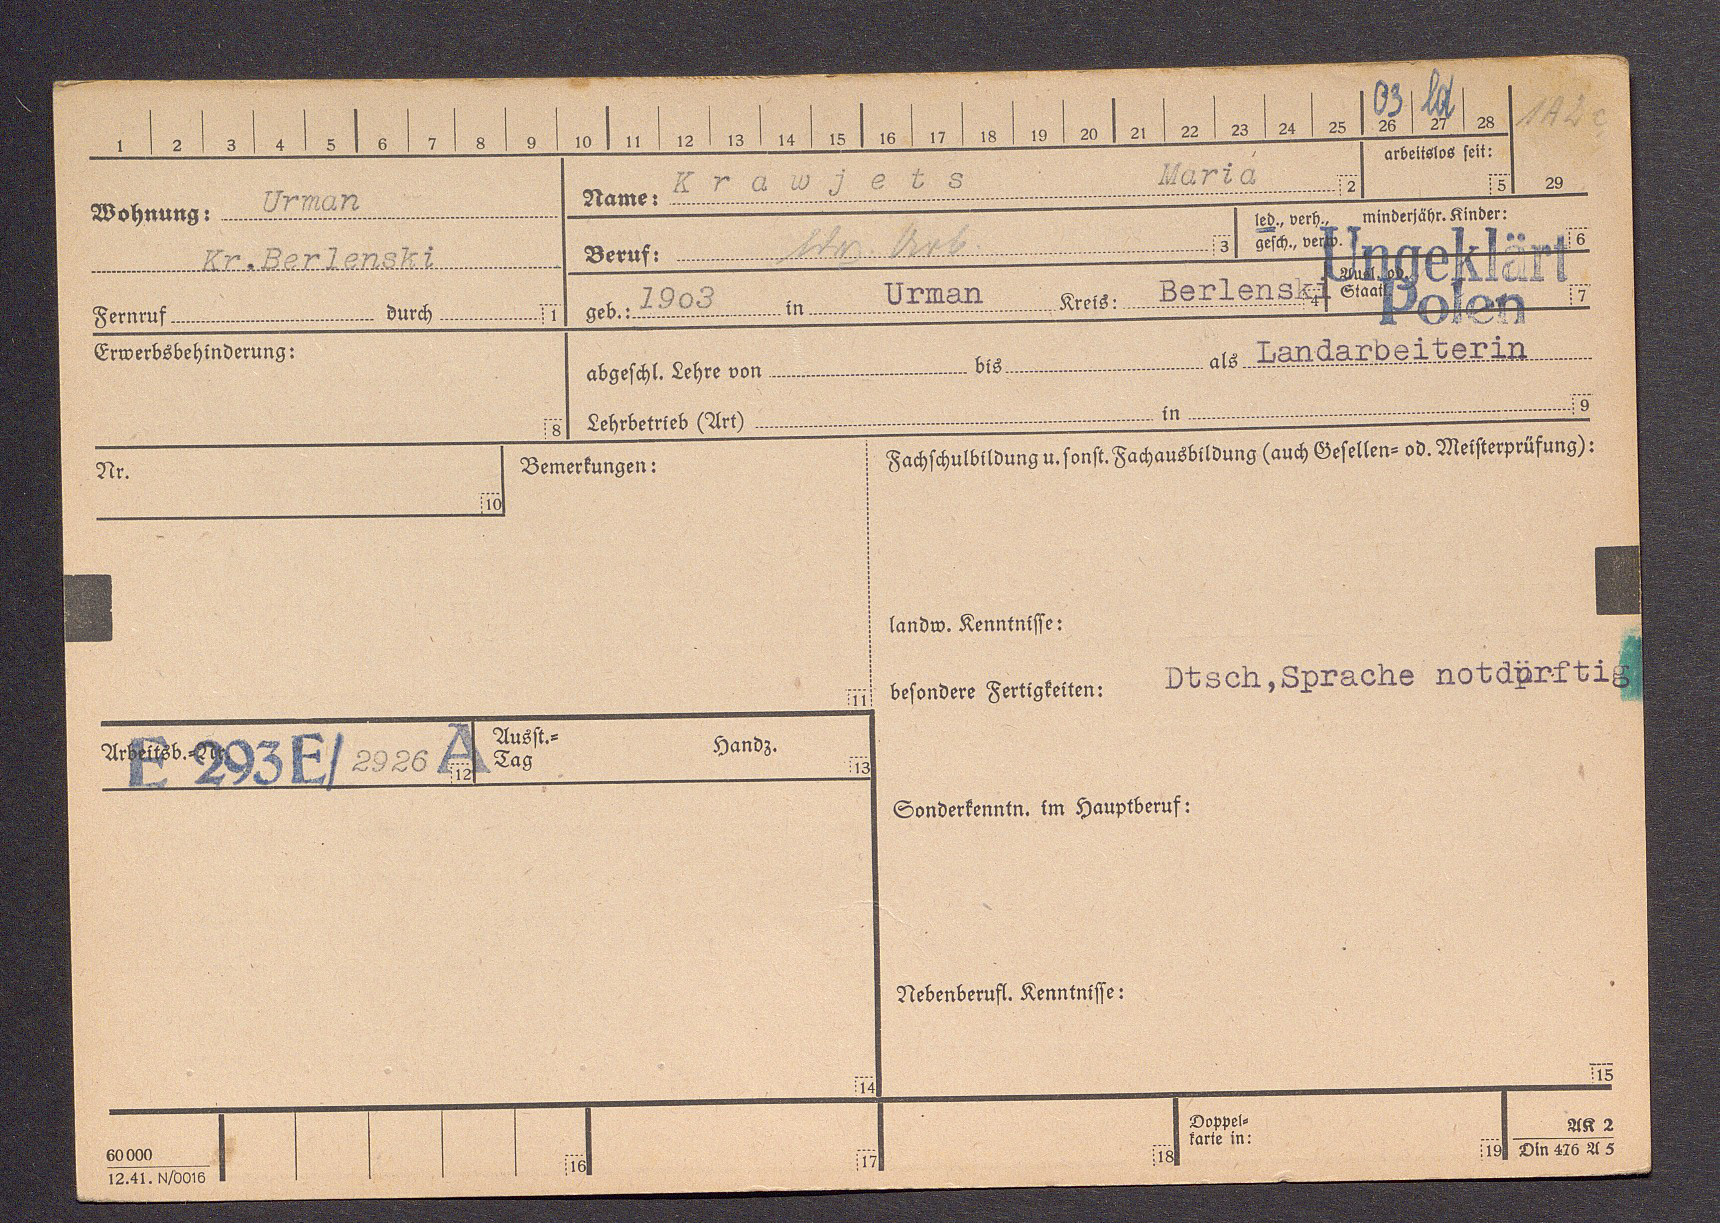 03 ld
1 2 3 4 5 6 7 8 9 10 11 12 13 14 15 16 17 18 19 20 21 22 23 24 25 26 27 28
1A2c
arbeitslos seit:
5 29
Wohnung: Urman
Kr.Berlenski
Fernruf durch 1
Name: Krawjets Mariá 2
Beruf: Arb. 3
led., verh., gesch., verw.
minderjähr. Kinder: 6
Ungeklärt
geb.: 19o3 in Urman Kreis: Berlenski 4
Ausl. od. Staatl. 7
Polen
Erwerbsbehinderung:
8
abgeschl. Lehre von bis als Landarbeiterin
Lehrbetrieb (Art) in 9
Nr.
10
Bemerkungen:
11
Fachschulbildung u. sonst. Fachausbildung (auch Gesellen= od. Meisterprüfung):
landw. Kenntnisse:
besondere Fertigkeiten: Dtsch,Sprache notdürftig
Arbeitsb.=Nr. E 293E/ 2926 A 12
Ausst.=
Tag
Handz. 13
Sonderkenntn. im Hauptberuf:
Nebenberufl. Kenntnisse:
14
15
60 000
12.41. N/0016
16
17
18
Doppel=
karte in:
19
AK 2
Din 476 A 5